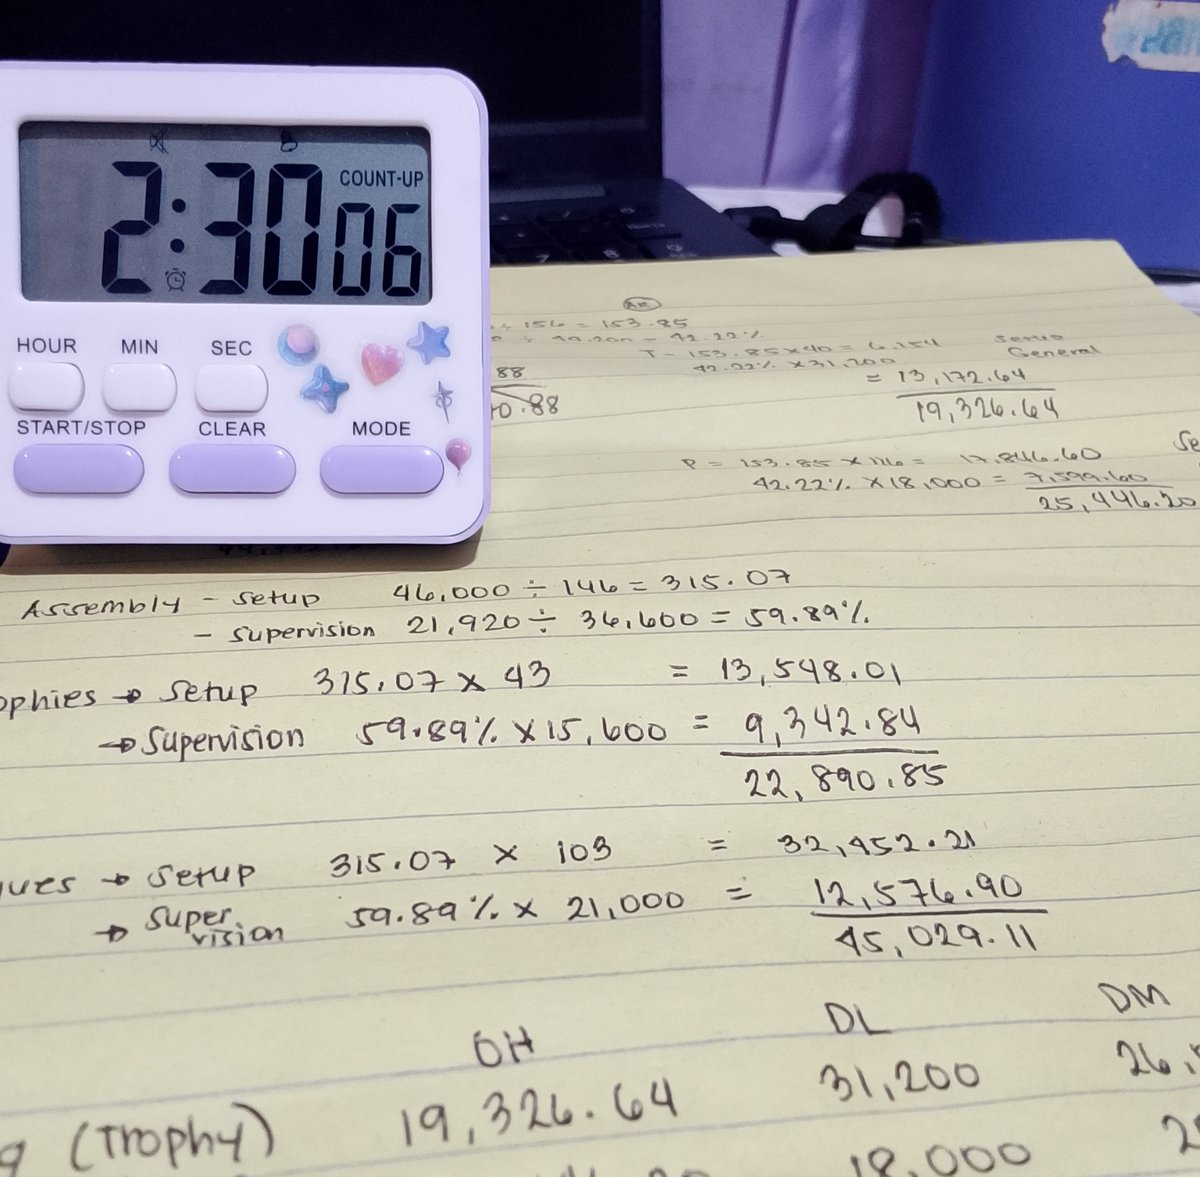 COUNT-UP
2:30 06
HOUR MIN SEC
START/STOP CLEAR MODE
÷ 156 = 153.85
T - 153.85 x 40 = 6,154
42.22% x 31,200
= 13,172.64
19,326.64
General
88
P = 153.85 x 116 = 17,846.60
42.22% x 18,000 = 7,599.60
25,446.20
Assembly - setup 46,000 ÷ 146 = 315.07
- supervision 21,920 ÷ 36,600 = 59.89%
ophies → setup 315.07 x 43 = 13,548.01
→ supervision 59.89% x 15,600 = 9,342.84
22,890.85
ques → setup 315.07 x 103 = 32,452.21
→ super vision 59.89% x 21,000 = 12,576.90
45,029.11
OH DL DM
g (Trophy) 19,326.64 31,200 26,
18,000 2